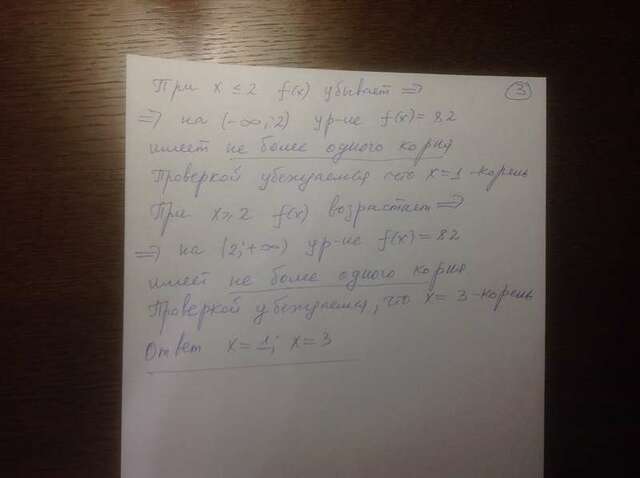 3
При x ≤ 2 f(x) убывает ⇒
⇒ на (-∞; 2) ур-ие f(x) = 82
имеет не более одного корня
Проверкой убеждаемся что x = 1 - корень
При x ≥ 2 f(x) возрастает ⇒
⇒ на (2; +∞) ур-ие f(x) = 82
имеет не более одного корня
Проверкой убеждаемся, что x = 3 - корень
Ответ x = 1; x = 3